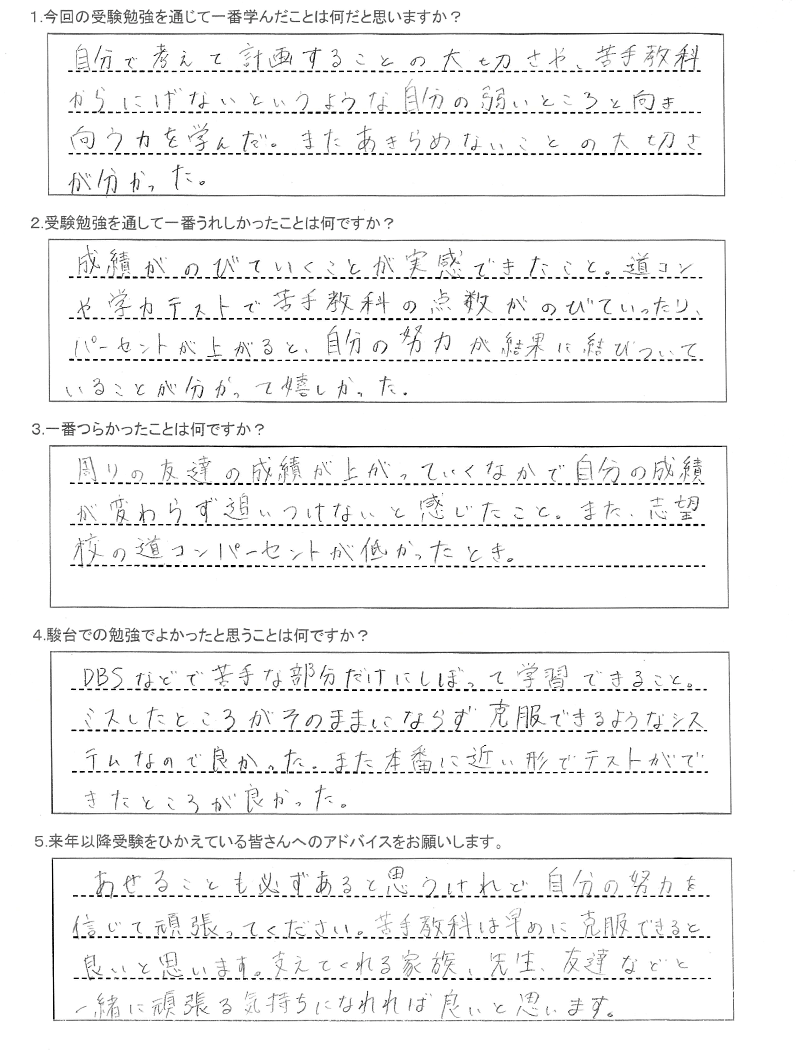 1.今回の受験勉強を通じて一番学んだことは何だと思いますか?
自分で考えて計画することの大切さや、苦手教科
からにげないというような自分の弱いところと向き
向う力を学んだ。またあきらめないことの大切さ
が分かった。
2.受験勉強を通して一番うれしかったことは何ですか?
成績がのびていくことが実感できたこと。道コン
や学力テストで苦手教科の点数がのびていったり、
パーセントが上がると、自分の努力が結果に結びついて
いることが分かって嬉しかった.
3.一番つらかったことは何ですか?
周りの友達の成績が上がっていくなかで自分の成績
が変わらず追いつけないと感じたこと。また、志望
校の道コンパーセントが低かったとき。
4.駿台での勉強でよかったと思うことは何ですか?
DBSなどで苦手な部分だけにしぼって学習できること。
ミスしたところがそのままにならず克服できるようなシス
テムなので良かった.また本番に近い形でテストがで
きたところが良かった。
5.来年以降受験をひかえている皆さんへのアドバイスをお願いします。
あせることも必ずあると思うけれど自分の努力を
信じて頑張ってください。苦手教科は早めに克服できると
良いと思います。支えてくれる家族、先生、友達などと
一緒に頑張る気持ちになれれば良いと思います。